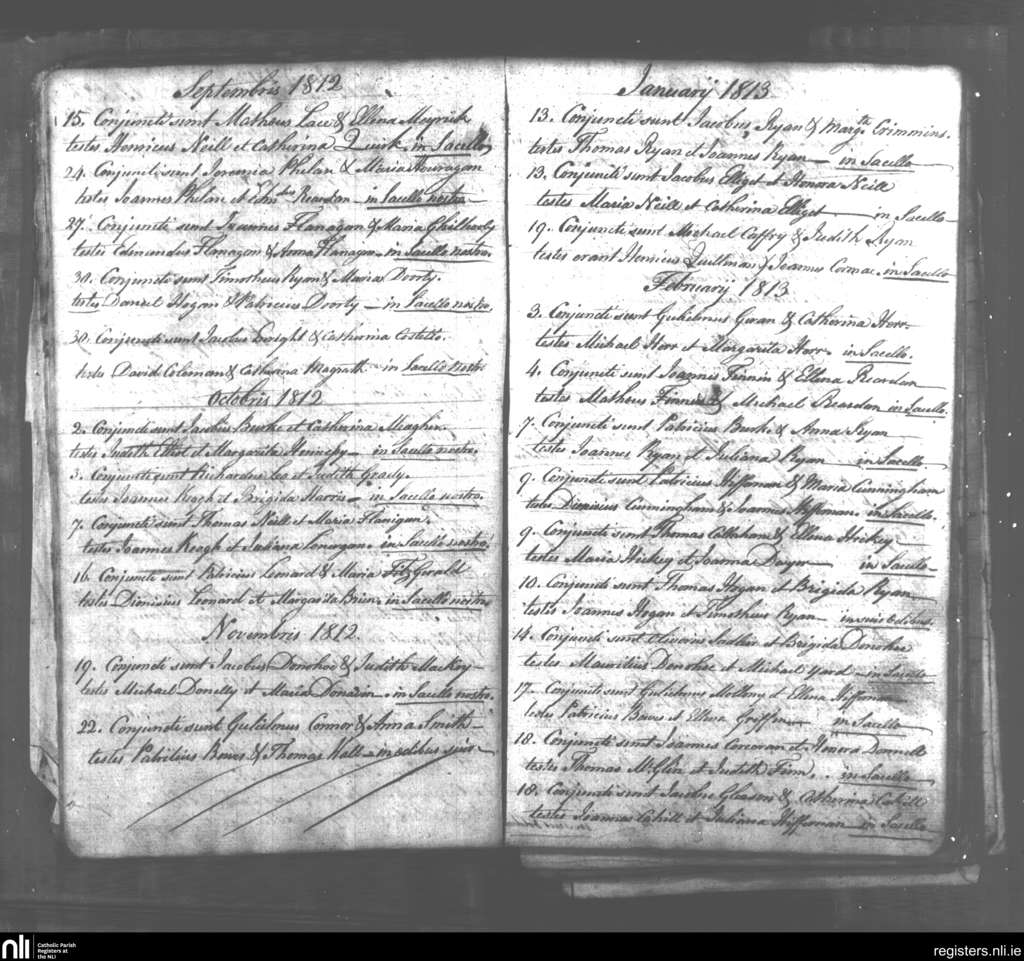 Septembris 1812
15. Conjuncti sunt Matheus Lace & Ellena Meyrick
testes Henricus Neill et Catherina Quirk in Sacello
24. Conjuncti sunt Jeremia Phelan & Maria Houragan
testes Joannes Phelan et Reardan in Sacello nostro
27. Conjuncti sunt Joannes Flanagan & Maria
testes Edmundus Flanagan & Anna Flanagan in Sacello nostro.
30. Conjuncti sunt Timotheus Ryan & Maria Dorty.
testes Daniel Hogan & Patricius Dorty in Sacello nostro.
30. Conjuncti sunt Jacobus Wright & Catherina Costello.
testes David Coleman & Catherina Magrath in Sacello nostro
Octobris 1812
2. Conjuncti sunt Jacobus Burke et Catherina Meagher.
testes Judith Elliot et Margarita Hennessy in Sacello nostro.
3. Conjuncti sunt Richardus Lea et Judith Grady.
testes Joannes Keogh et Brigida Harris in Sacello nostro.
7. Conjuncti sunt Thomas Neill et Maria Flanigan.
testes Joannes Keogh et Juliana Lonergan. in Sacello nostro
16. Conjuncti sunt Patricius Leonard & Maria FitzGerald
testes Dionisius Leonard et Margarita Brien in Sacello nostro
Novembris 1812
19. Conjuncti sunt Jacobus Donohoe & Judith Mackey
testes Michael Donelly et Maria Donavin in Sacello nostro.
22. Conjuncti sunt Gulielmus Connor & Anna Smith
testes Patricius Bowes & Thomas Wall in edibus suis
Januarij 1813
13. Conjuncti sunt Jacobus Ryan & Margth Crimmins.
testes Thomas Ryan et Joannes Ryan in Sacello
13. Conjuncti sunt Jacobus Elliget et Honora Neill
testes Maria Neill et Catherina Elliget in Sacello
19. Conjuncti sunt Michael Caffry & Judith Ryan
testes erant Henricus Quillman & Joannes Cormac in Sacello
Februarij 1813.
3. Conjuncti sunt Gulielmus Guran & Catherina Horr
testes Michael Horr et Margarita Horr in Sacello.
4. Conjuncti sunt Joannes Finnin & Ellena Reardan
testes Matheus Finnin & Michael Reardan in Sacello.
7. Conjuncti sunt Patricius Burke & Anna Ryan
testes Joannes Ryan et Juliana Ryan in Sacello
9. Conjuncti sunt Patricius Heffernan & Maria Cunningham
testes Dionisius Cunningham & Joannes Heffernan. in Sacello.
9. Conjuncti sunt Thomas Callahan & Ellena Hickey
testes Maria Hickey et Joanna Dwyer in Sacello
10. Conjuncti sunt Thomas Hogan et Brigida Ryan
testes Joannes Hogan et Timotheus Ryan in suis Edibus.
14. Conjuncti sunt Oliverus Sadlier et Brigida Donohoe
testes Mauritius Donohoe et Michael Ward in Sacello
17. Conjuncti sunt Gulielmus Molony et Ellena Heffernan
testes Patricius Bowes et Ellena Griffin in Sacello
18. Conjuncti sunt Joannes Corcoran et Honora Donnell
testes Thomas McGlin et Judith Finn, in Sacello
18. Conjuncti sunt Jacobus Gleason & Catherina Cahill
testes Joannes Cahill et Juliana Heffernan in Sacello
nli Catholic Parish Registers at the NLI
registers.nli.ie